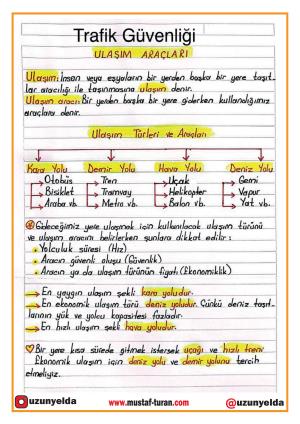 Trafik Güvenliği
ULAŞIM ARAÇLARI
Ulaşım: İnsan veya eşyaların bir yerden başka bir yere taşıt-
lar aracılığı ile taşınmasına ulaşım denir.
Ulaşım aracı: Bir yerden başka bir yere giderken kullandığımız
araçlara denir.
Ulaşım Türleri ve Araçları
Kara Yolu Demir Yolu Hava Yolu Deniz Yolu
Otobüs Tren Uçak Gemi
Bisiklet Tramvay Helikopter Vapur
Araba vb. Metro vb. Balon vb. Yat vb.
Geleceğimiz yere ulaşmak için kullanılacak ulaşım türünü
ve ulaşım aracını belirlerken şunlara dikkat edilir:
• Yolculuk süresi (Hız)
• Aracın güvenli oluşu (Güvenlik)
• Aracın ya da ulaşım türünün fiyatı (Ekonomiklik)
→ En yaygın ulaşım şekli kara yoludur.
→ En ekonomik ulaşım türü deniz yoludur. Çünkü deniz taşıt-
larının yük ve yolcu kapasitesi fazladır.
→ En hızlı ulaşım şekli hava yoludur.
♡ Bir yere kısa sürede gitmek istersek uçağı ve hızlı treni
Ekonomik ulaşım için deniz yolu ve demir yolunu tercih
etmeliyiz.
uzunyelda www.mustaf-turan.com @uzunyelda